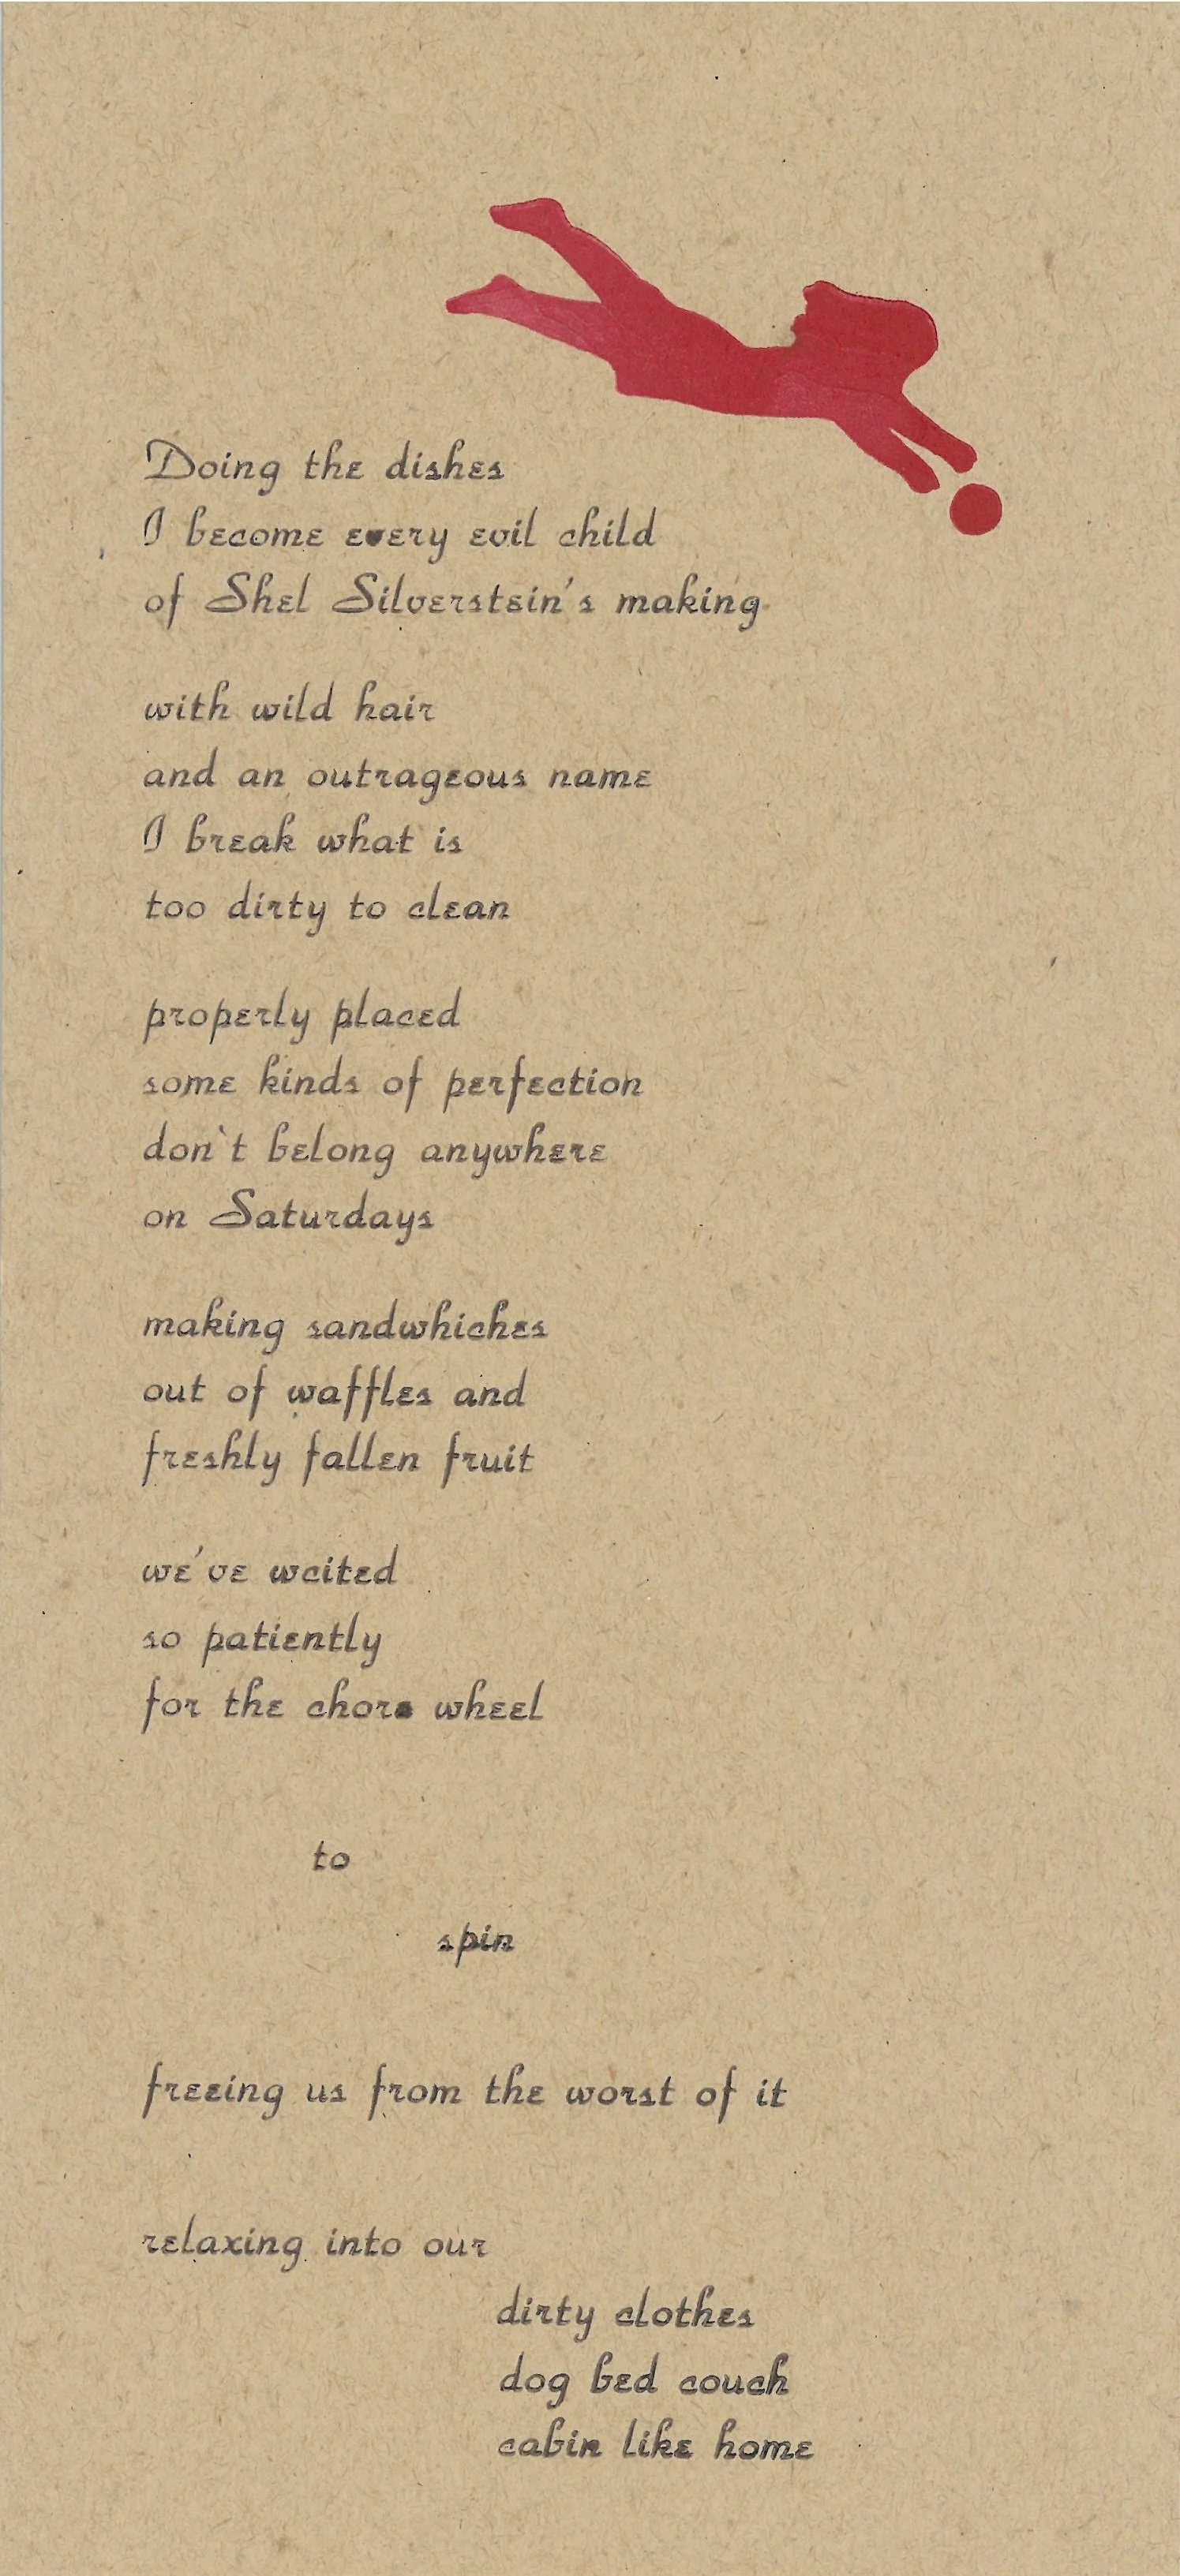 Doing the dishes
I become every evil child
of Shel Silverstein's making
with wild hair
and an outrageous name
I break what is
too dirty to clean
properly placed
some kinds of perfection
don`t belong anywhere
on Saturdays
making sandwhiches
out of waffles and
freshly fallen fruit
we've waited
so patiently
for the chore wheel
to
spin
freeing us from the worst of it
relaxing into our
dirty clothes
dog bed couch
cabin like home